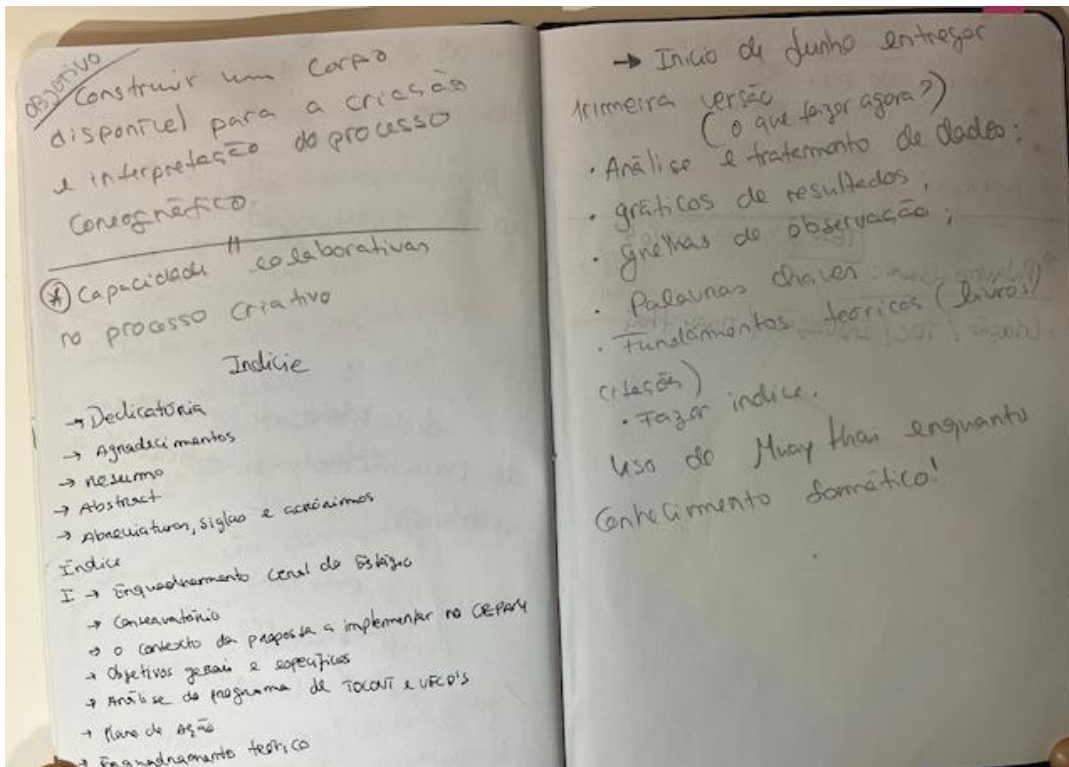 OBJETIVO
Construir um corpo
disponível para a criação
e interpretação do processo
coreográfico.
* Capacidade colaborativas
no processo criativo
Indície
→ Dedicatória
→ Agradecimentos
→ resumo
→ Abstract
→ Abreviaturas, siglas e acrónimos
Índice
I → Enquadramento Geral do Estágio
→ Conservatório
→ o contexto da proposta a implementar no CEPAM
→ Objetivos gerais e específicos
→ Análise do programa de e UFCD'S
→ Plano de Ação
→ Enquadramento teórico
→ Início de Junho entregar
Primeira versão
(o que fazer agora?)
· Análise e tratamento de dados:
· gráficos de resultados;
· grelhas de observação;
· Palavras chaves:
· Fundamentos teóricos (livros)
citações)
· Fazer indice.
uso do Muay thai enquanto
Conhecimento somático!